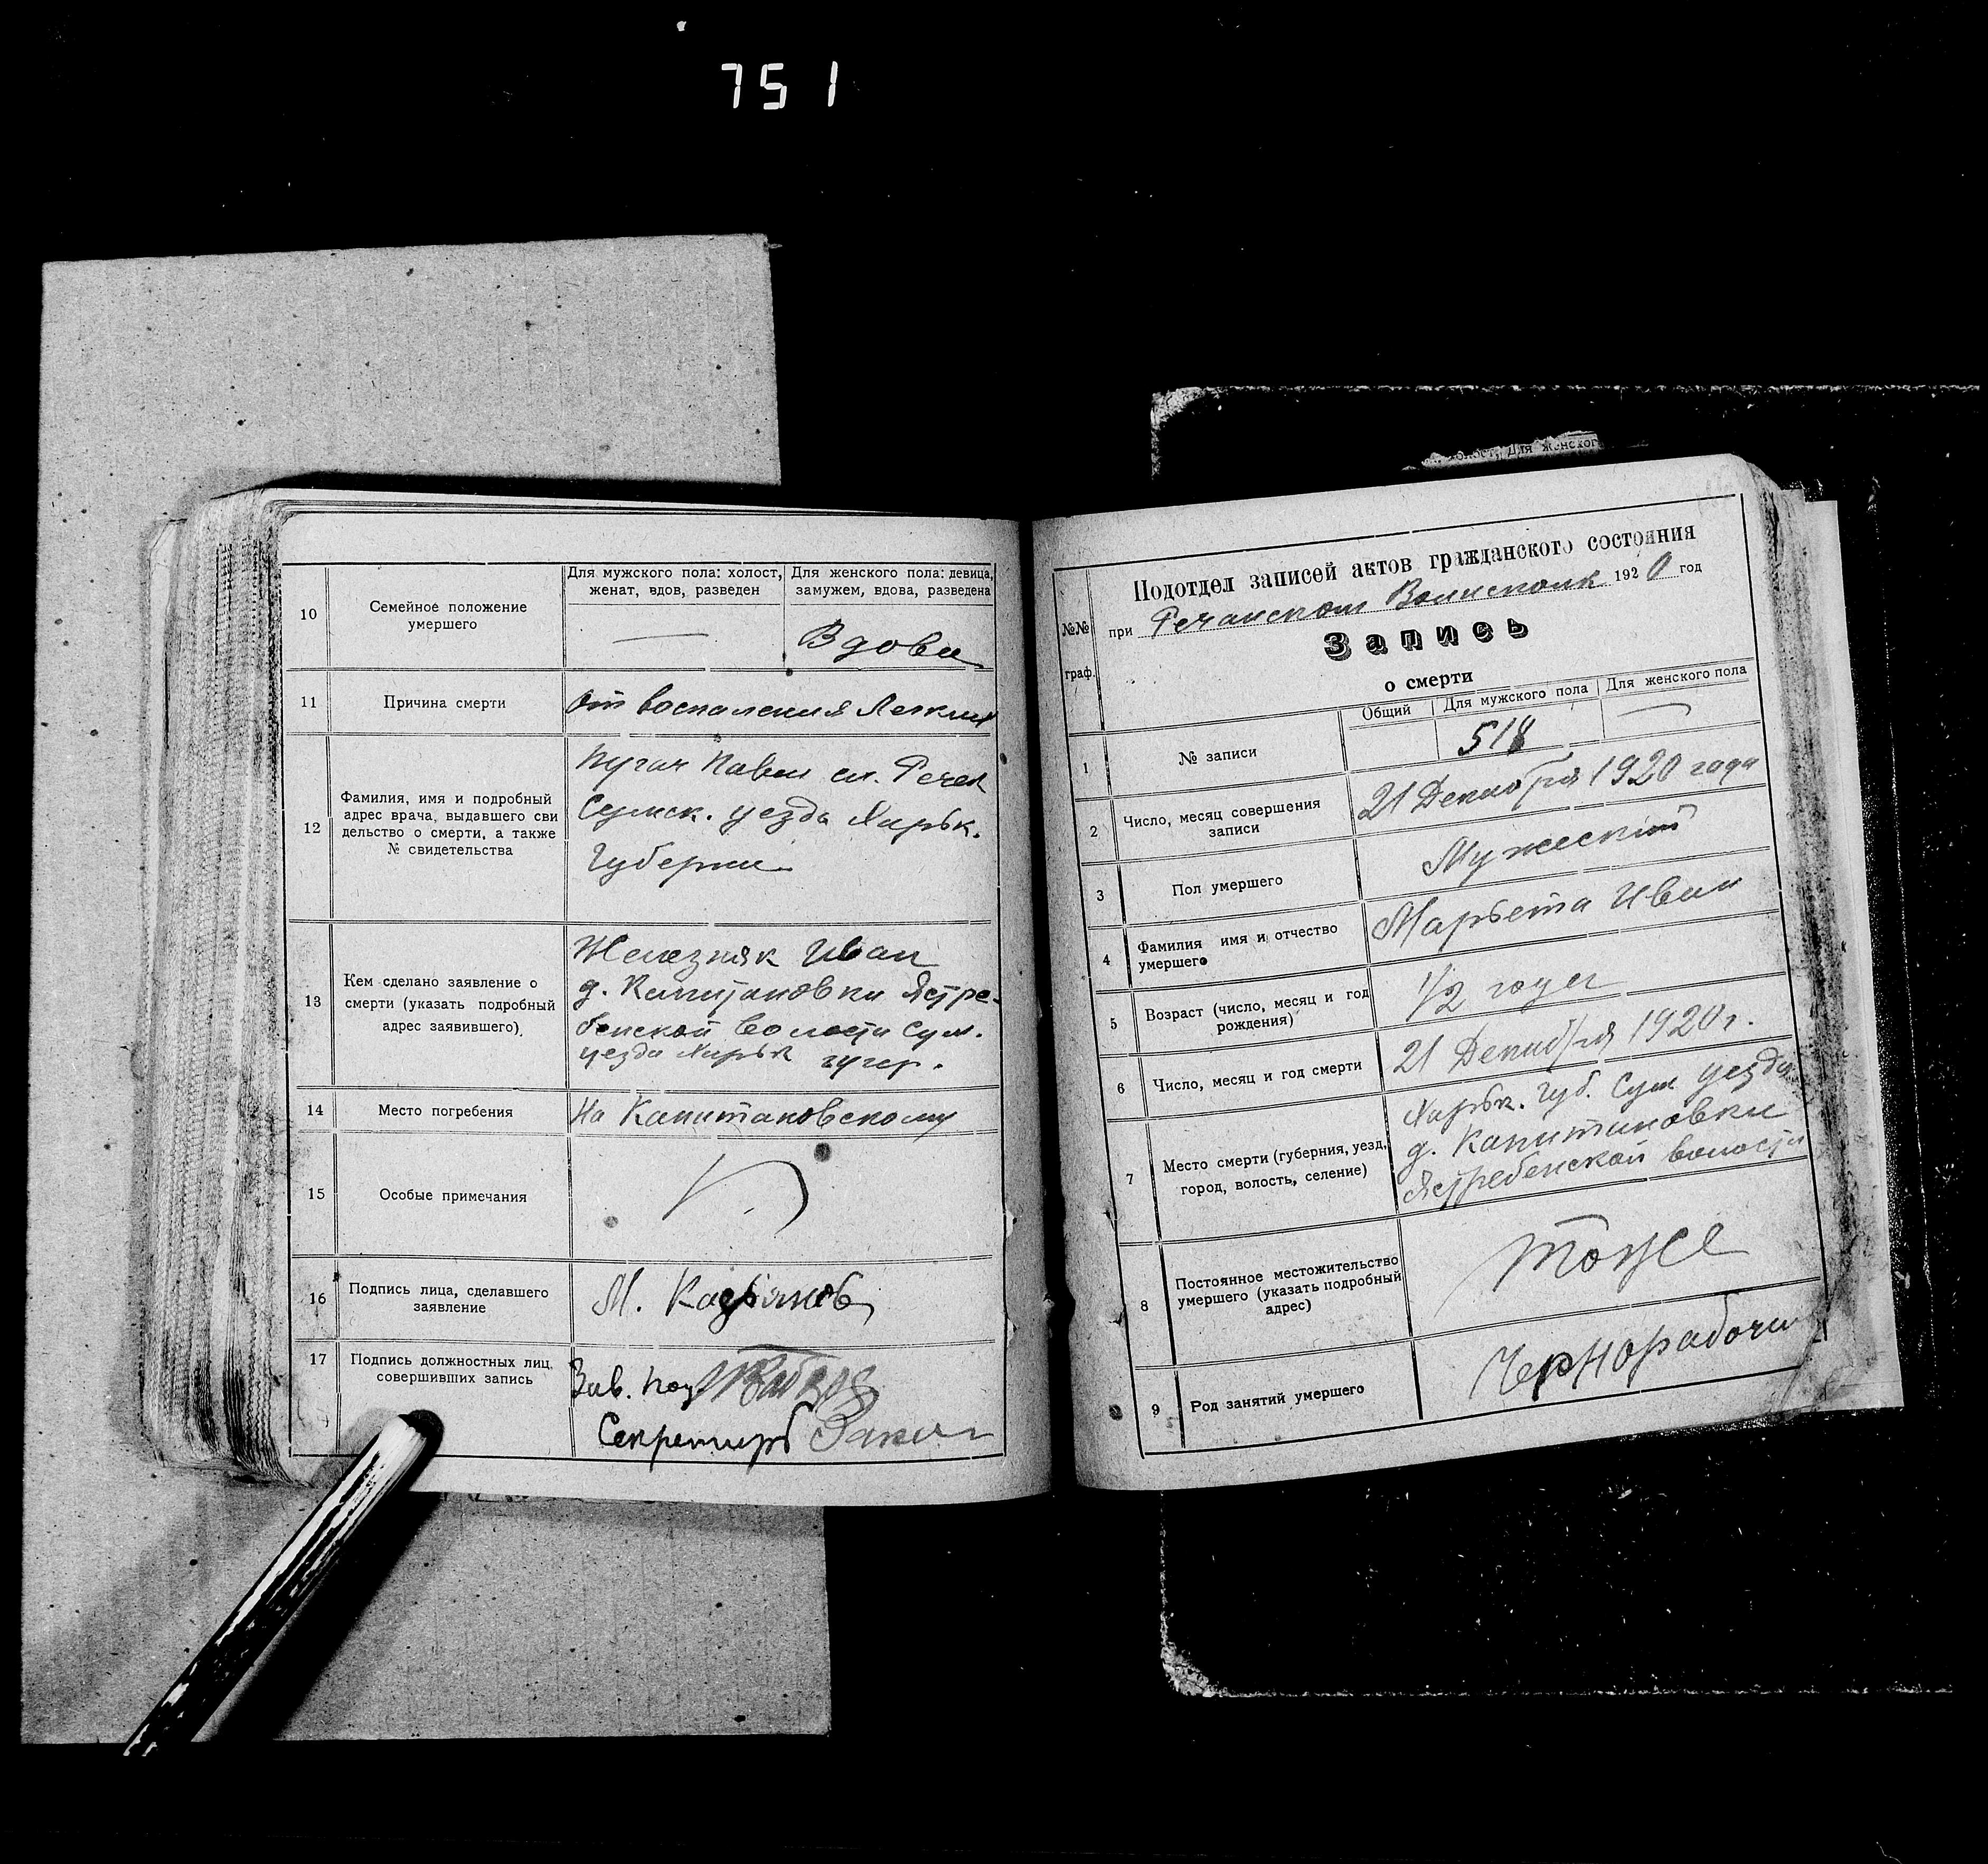 751
10
Семейное положение
умершего
Для мужского пола: холост,
женат, вдов, разведен
Для женского пола: девица,
замужем, вдова, разведена
—
Вдова
11
Причина смерти
От воспаления Легких
12
Фамилия, имя и подробный
адрес врача, выдавшего сви
дельство о смерти, а также
№ свидетельства
Пугач Павел сл. Речек
Сумск. уезда Харьк.
Губерни
13
Кем сделано заявление о
смерти (указать подробный
адрес заявившего).
Железняк Иван
д. Капитановки Ястре-
бенской волости Сум.
уезда Харьк губер.
14
Место погребения
На Капитановскому
15
Особые примечания
16
Подпись лица, сделавшего
заявление
М.
17
Подпись должностных лиц,
совершивших запись
Зав. Под
Секретарь
Для женского
№№
граф.
Подотдел записей актов гражданского состояния
при Речанском Волисполк 1920 год
Запись
о смерти
Общий
Для мужского пола
Для женского пола
1
№ записи
518
—
2
Число, месяц совершения
записи
21 Декабря 1920 года
3
Пол умершего
Мужеский
4
Фамилия имя и отчество
умершего
Марьета Иван
5
Возраст (число, месяц и год
рождения)
1/2 года
6
Число, месяц и год смерти
21 Декабря 1920 г.
7
Место смерти (губерния, уезд,
город, волость, селение)
Харьк. Губ. Сум уезда
д. Капитановки
Ястребенской волости
8
Постоянное местожительство
умершего (указать подробный
адрес)
тоже
9
Род занятий умершего
Чернорабочи